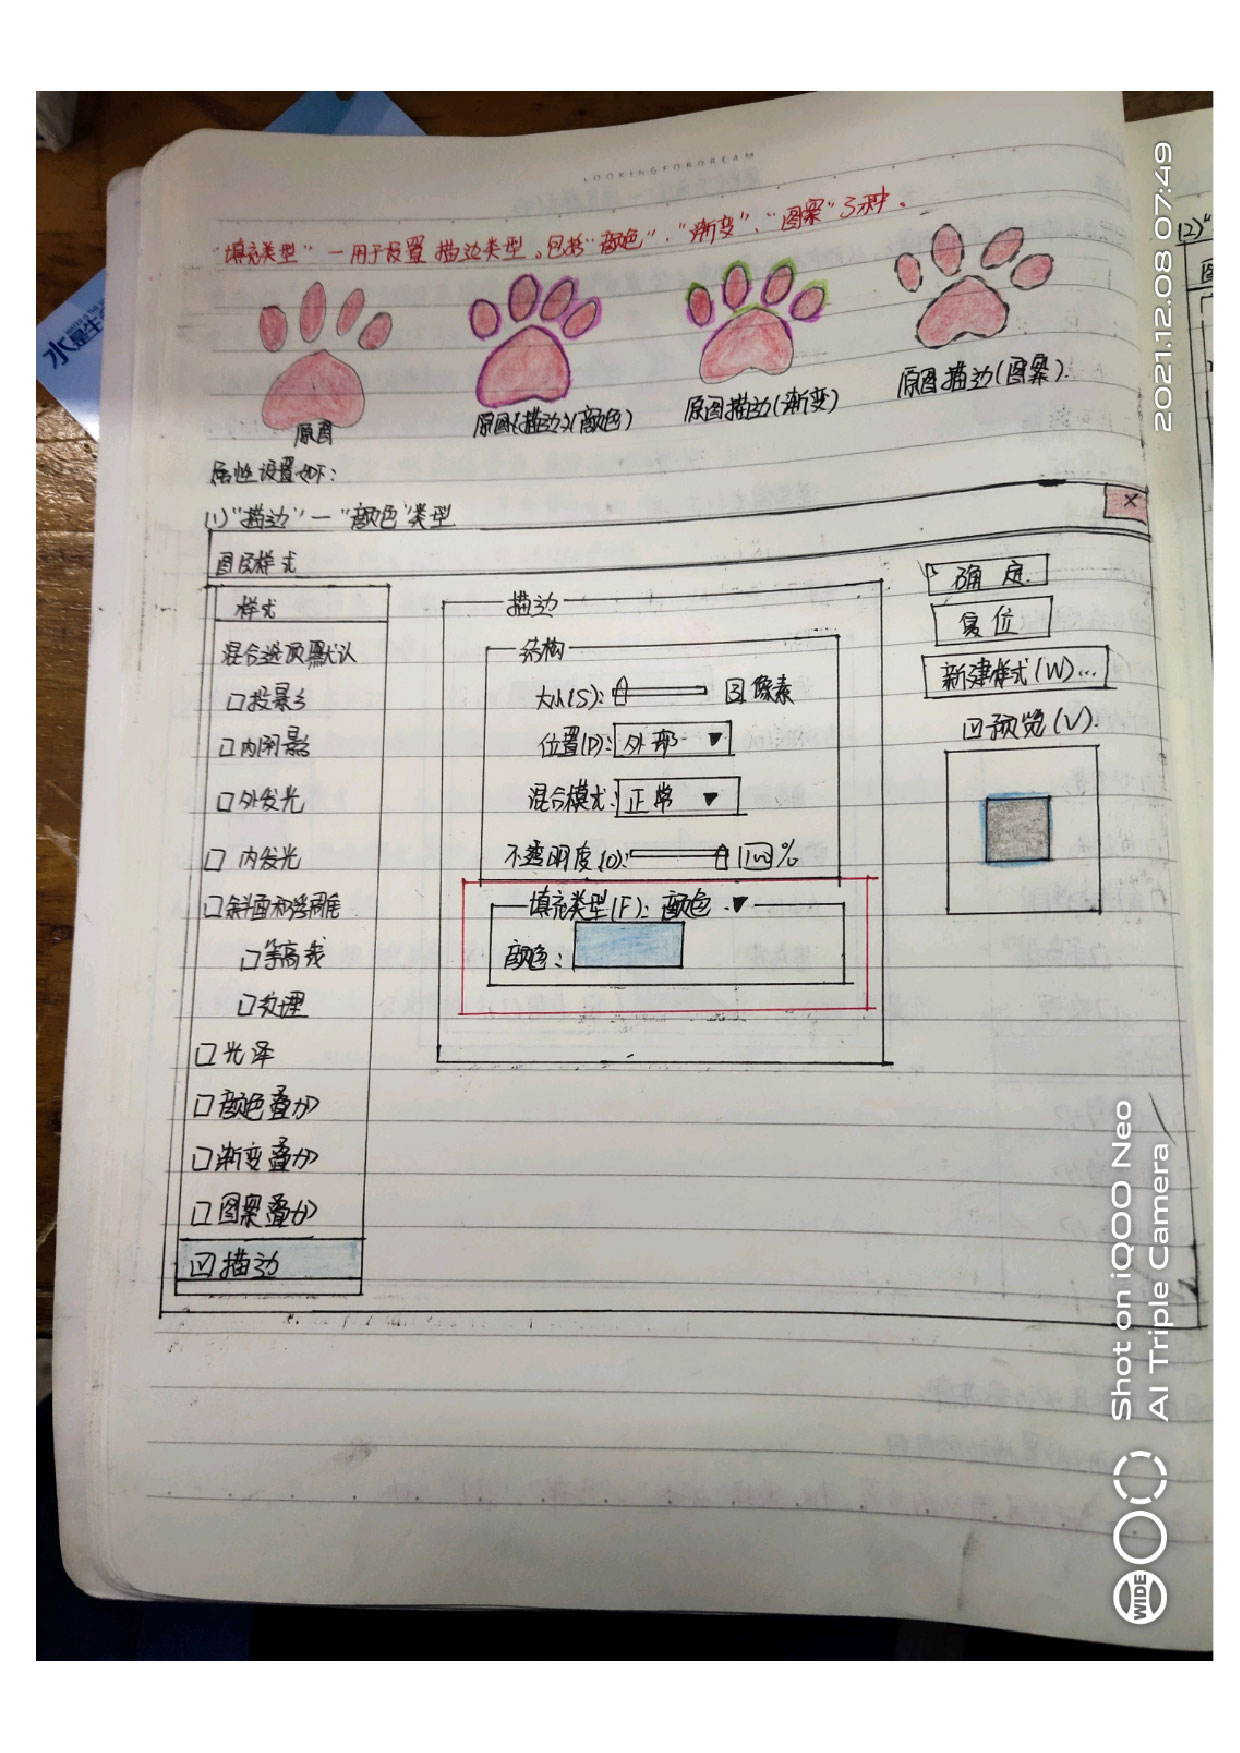 LOOKINGFORDREAM
"填充类型" — 用于设置 描边类型。包括"颜色"、"渐变"、"图案"3种。
原图
原图(描边)(颜色)
原图描边(渐变)
原图描边(图案).
属性设置如下:
(1)"描边"—"颜色"类型
×
图层样式
样式
混合选项:默认
□投影
□内阴影
□外发光
□ 内发光
□斜面和浮雕
□等高线
□纹理
□光泽
□颜色叠加
□渐变叠加
□图案叠加
☑描边
描边
结构
大小(S): 3 像素
位置(P): 外部 ▼
混合模式: 正常 ▼
不透明度(O): 100 %
填充类型(F): 颜色 ▼
颜色:
确定
复位
新建样式(W)...
☑预览(V).
(2)"
图
水是生
2021.12.08 07:49
Shot on iQOO Neo
AI Triple Camera
WIDE